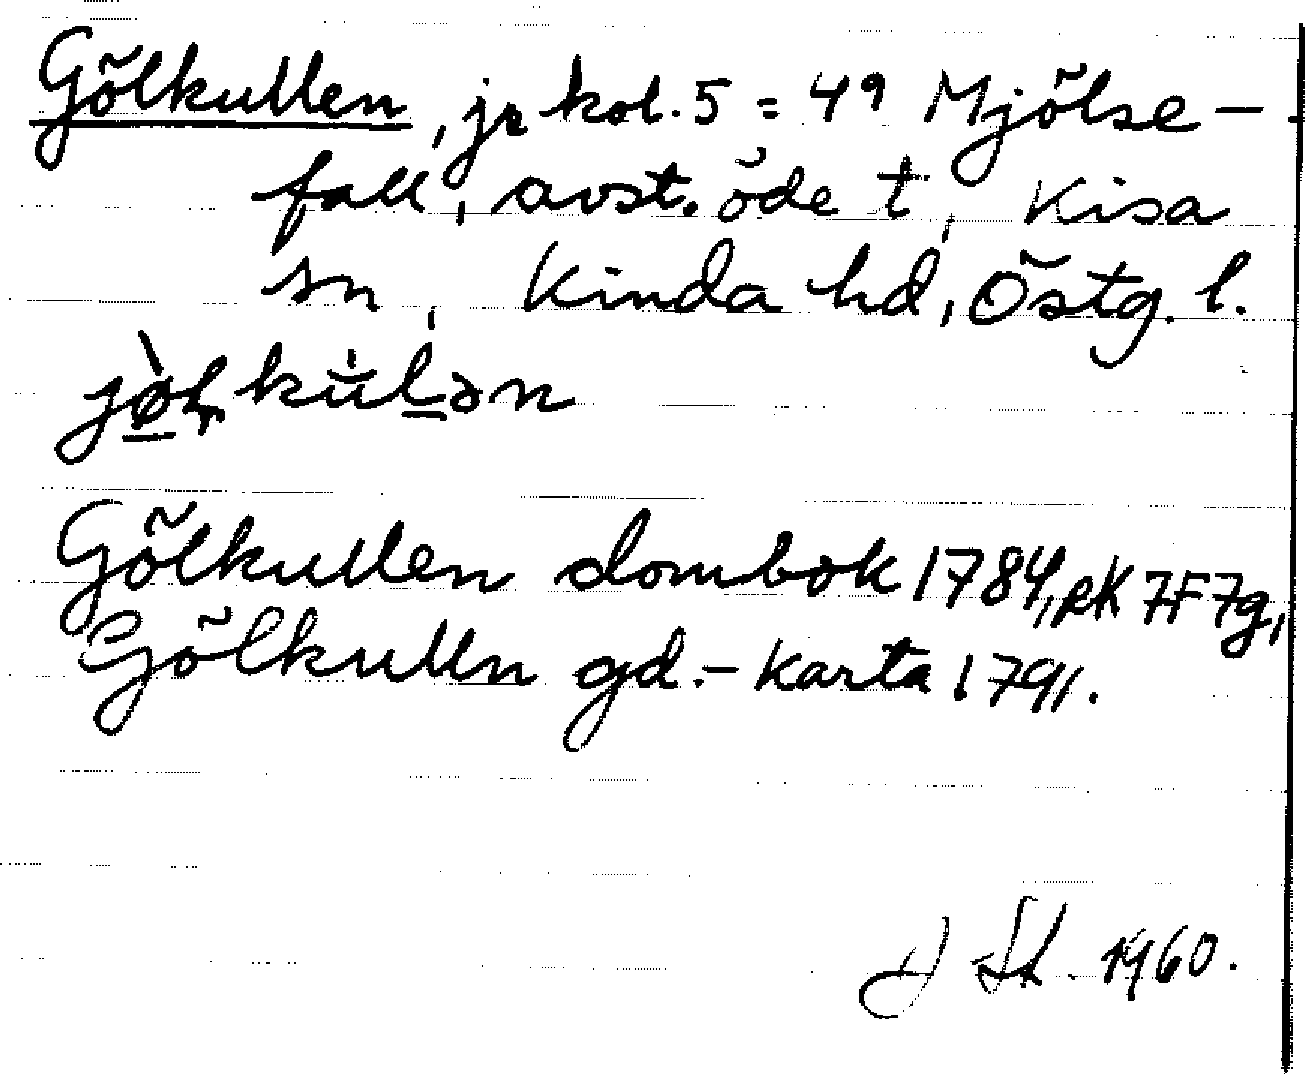 Gölkullen, jr kol. 5 = 4⁹ Mjölse-
fall, avst. öde t, Kisa
sn, Kinda hd, Östg. l.
jø̀lkúlən
Gölkullen dombok 1784, RK 7F7g,
Gölkulln gd.-karta 1791.
1960.